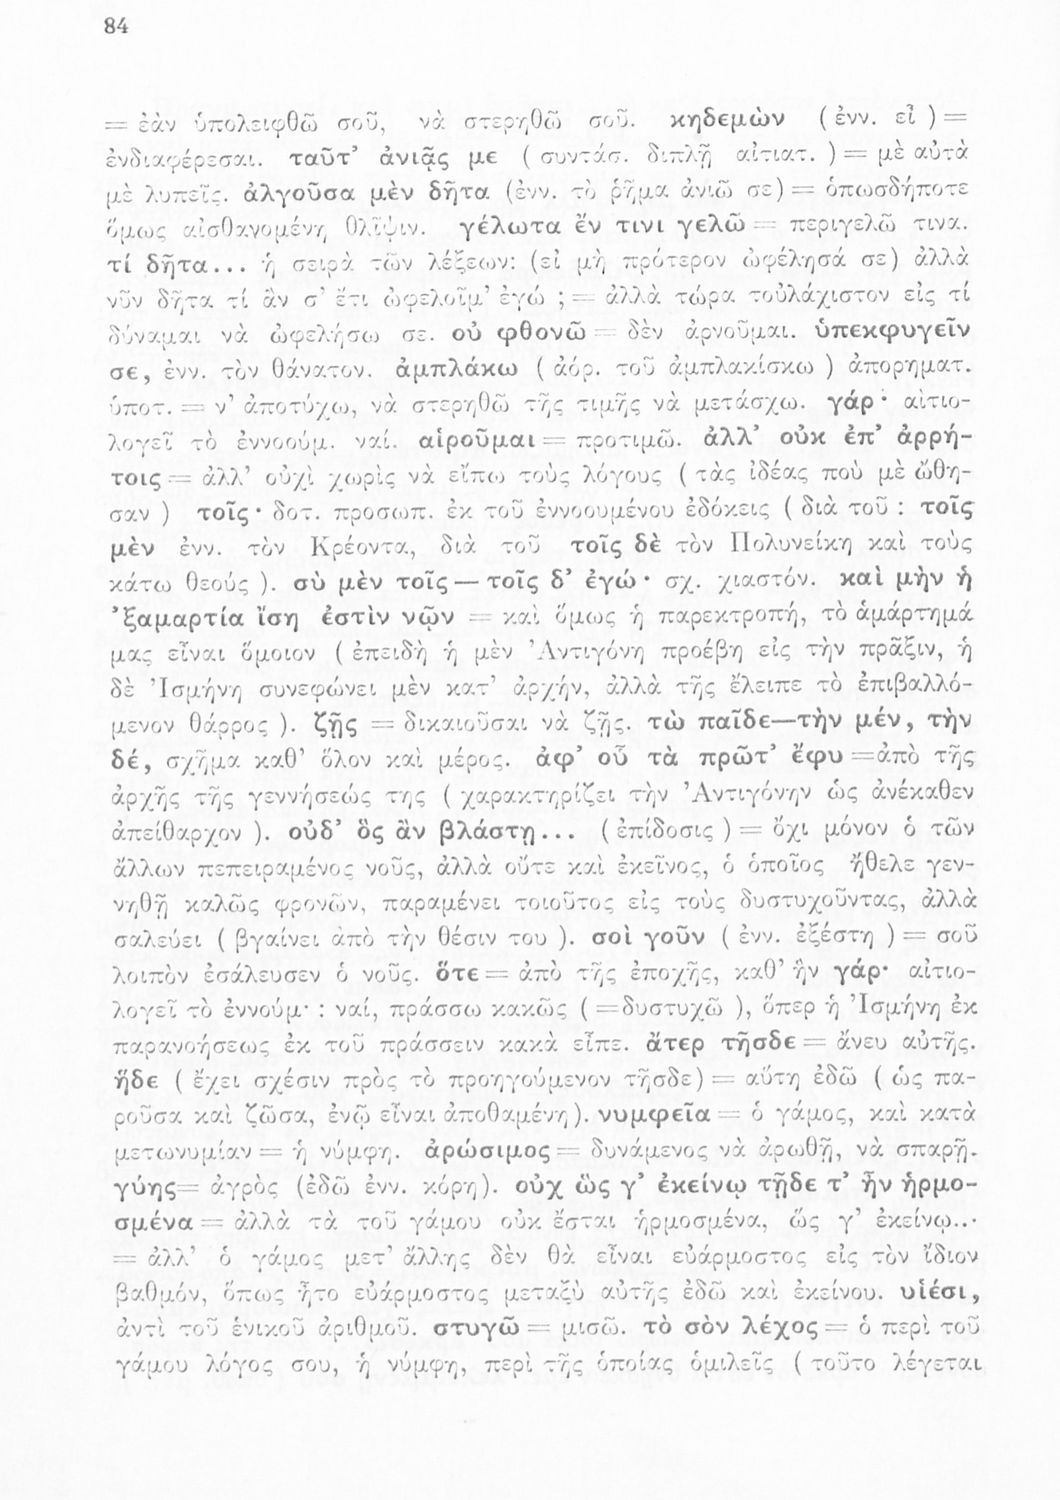 84
= ἐὰν ὑπολειφθῶ σοῦ, νὰ στερηθῶ σοῦ. κηδεμὼν (ἐνν. εἶ) =
ἐνδιαφέρεσαι. ταῦτ’ ἀνιᾷς με ( συντάσ. διπλῇ αἰτιατ. ) = μὲ αὐτὰ
μὲ λυπεῖς. ἀλγοῦσα μὲν δῆτα (ἐνν. τὸ ῥῆμα ἀνιῶ σε) = ὁπωσδήποτε
ὅμως αἰσθανομένη θλῖψιν. γέλωτα ἔν τινι γελῶ = περιγελῶ τινα.
τί δῆτα... ἡ σειρὰ τῶν λέξεων: (εἰ μὴ πρότερον ὠφέλησά σε) ἀλλὰ
νῦν δῆτα τί ἂν σ’ ἔτι ὠφελοῖμ’ ἐγώ ; = ἀλλὰ τώρα τοὐλάχιστον εἰς τί
δύναμαι νὰ ὠφελήσω σε. οὐ φθονῶ = δὲν ἀρνοῦμαι. ὑπεκφυγεῖν
σε, ἐνν. τὸν θάνατον. ἀμπλάκω ( ἀόρ. τοῦ ἀμπλακίσκω ) ἀπορηματ.
ὑποτ. = ν’ ἀποτύχω, νὰ στερηθῶ τῆς τιμῆς νὰ μετάσχω. γάρ· αἰτιο-
λογεῖ τὸ ἐννοούμ. ναί. αἱροῦμαι = προτιμῶ. ἀλλ’ οὐκ ἐπ’ ἀρρή-
τοις = ἀλλ’ οὐχὶ χωρὶς νὰ εἴπω τοὺς λόγους ( τὰς ἰδέας ποὺ μὲ ὤθη-
σαν ) τοῖς· δοτ. προσωπ. ἐκ τοῦ ἐννοουμένου ἐδόκεις ( διὰ τοῦ : τοῖς
μὲν ἐνν. τὸν Κρέοντα, διὰ τοῦ τοῖς δὲ τὸν Πολυνείκη καὶ τοὺς
κάτω θεούς ). σὺ μὲν τοῖς — τοῖς δ’ ἐγώ· σχ. χιαστόν. καὶ μὴν ἡ
’ξαμαρτία ἴση ἐστὶν νῷν = καὶ ὅμως ἡ παρεκτροπή, τὸ ἁμάρτημά
μας εἶναι ὅμοιον ( ἐπειδὴ ἡ μὲν Ἀντιγόνη προέβη εἰς τὴν πρᾶξιν, ἡ
δὲ Ἰσμήνη συνεφώνει μὲν κατ’ ἀρχήν, ἀλλὰ τῆς ἔλειπε τὸ ἐπιβαλλό-
μενον θάρρος ). ζῇς = δικαιοῦσαι νὰ ζῇς. τὼ παῖδε—τὴν μέν, τὴν
δέ, σχῆμα καθ’ ὅλον καὶ μέρος. ἀφ’ οὗ τὰ πρῶτ’ ἔφυ =ἀπὸ τῆς
ἀρχῆς τῆς γεννήσεώς της ( χαρακτηρίζει τὴν Ἀντιγόνην ὡς ἀνέκαθεν
ἀπείθαρχον ). οὐδ’ ὃς ἂν βλάστῃ... (ἐπίδοσις ) = ὄχι μόνον ὁ τῶν
ἄλλων πεπειραμένος νοῦς, ἀλλὰ οὔτε καὶ ἐκεῖνος, ὁ ὁποῖος ἤθελε γεν-
νηθῆ καλῶς φρονῶν, παραμένει τοιοῦτος εἰς τοὺς δυστυχοῦντας, ἀλλὰ
σαλεύει ( βγαίνει ἀπὸ τὴν θέσιν του ). σοὶ γοῦν ( ἐνν. ἐξέστη ) = σοῦ
λοιπὸν ἐσάλευσεν ὁ νοῦς. ὅτε = ἀπὸ τῆς ἐποχῆς, καθ’ ἣν γάρ· αἰτιο-
λογεῖ τὸ ἐννούμ· : ναί, πράσσω κακῶς ( =δυστυχῶ ), ὅπερ ἡ Ἰσμήνη ἐκ
παρανοήσεως ἐκ τοῦ πράσσειν κακὰ εἶπε. ἄτερ τῆσδε = ἄνευ αὐτῆς.
ἥδε ( ἔχει σχέσιν πρὸς τὸ προηγούμενον τῆσδε) = αὕτη ἐδῶ ( ὡς πα-
ροῦσα καὶ ζῶσα, ἐνῷ εἶναι ἀποθαμένη). νυμφεῖα = ὁ γάμος, καὶ κατὰ
μετωνυμίαν = ἡ νύμφη. ἀρώσιμος = δυνάμενος νὰ ἀρωθῇ, νὰ σπαρῇ.
γύης= ἀγρὸς (ἐδῶ ἐνν. κόρη). οὐχ ὥς γ’ ἐκείνῳ τῇδε τ’ ἦν ἡρμο-
σμένα = ἀλλὰ τὰ τοῦ γάμου οὐκ ἔσται ἡρμοσμένα, ὥς γ’ ἐκείνῳ...
= ἀλλ’ ὁ γάμος μετ’ ἄλλης δὲν θὰ εἶναι εὐάρμοστος εἰς τὸν ἴδιον
βαθμόν, ὅπως ἦτο εὐάρμοστος μεταξὺ αὐτῆς ἐδῶ καὶ ἐκείνου. υἱέσι,
ἀντὶ τοῦ ἑνικοῦ ἀριθμοῦ. στυγῶ = μισῶ. τὸ σὸν λέχος = ὁ περὶ τοῦ
γάμου λόγος σου, ἡ νύμφη, περὶ τῆς ὁποίας ὁμιλεῖς ( τοῦτο λέγεται